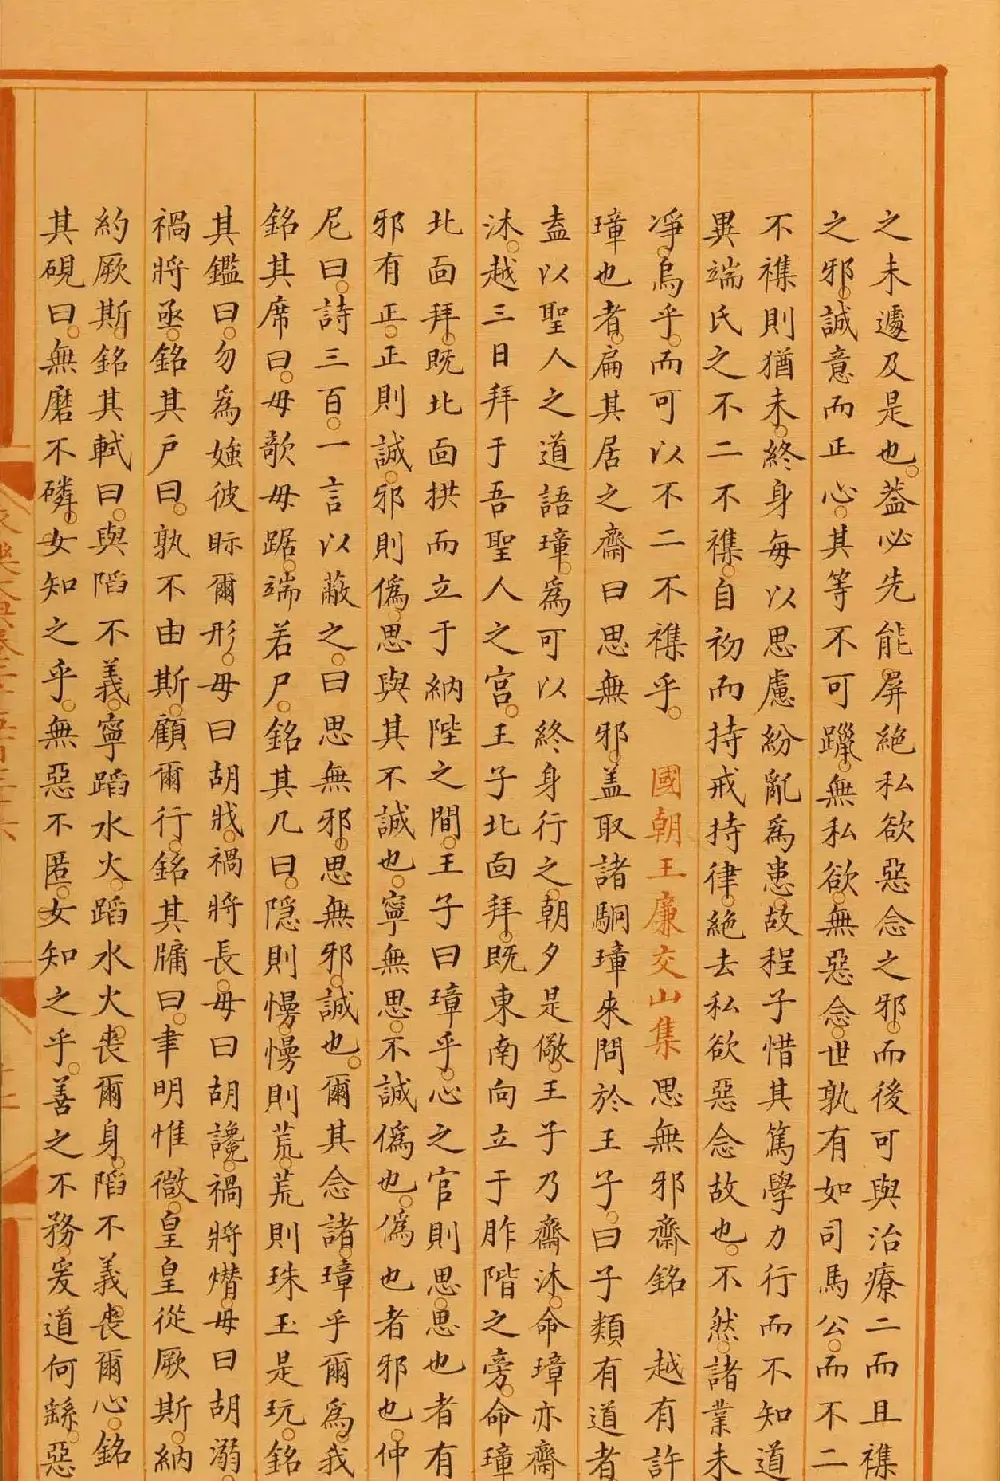 之未遽及是也。葢必先能屏絕私欲惡念之邪。而後可與治療二而且襍
之邪。誠意而正心。其等不可躐。無私欲。無惡念。世孰有如司馬公。而不二
不襍則猶未。終身每以思慮紛亂為患。故程子惜其篤學力行而不知道
異端氏之不二不襍。自初而持戒持律。絕去私欲惡念故也。不然。諸業未
凈。烏乎。而可以不二不襍乎。國朝王廉交山集思無邪齋銘 越有許
璋也者。扁其居之齋曰思無邪。盖取諸駉。璋來問於王子。曰子類有道者
盍以聖人之道語璋。為可以終身行之。朝夕是儆。王子乃齋沐。命璋亦齋
沐。越三日拜于吾聖人之宮。王子北面拜。既東南向立于阼階之旁。命璋
北面拜。既北面拱而立于納陛之間。王子曰璋乎。心之官則思。思也者有
邪有正。正則誠。邪則偽。思與其不誠也。寧無思。不誠偽也。偽也者邪也。仲
尼曰。詩三百。一言以蔽之。曰思無邪。思無邪。誠也。爾其念諸。璋乎爾為。我
銘其席曰。毋欹毋踞。端若尸。銘其几曰。隐則慢。慢則荒。荒則珠玉是玩。銘
其鑑曰。勿為媸彼眎爾形。毋曰胡戕。禍將長。毋曰胡讒。禍將熸。毋曰胡溺
禍將亟。銘其户曰。孰不由斯。顧爾行。銘其牖曰。聿明惟微。皇皇從厥斯。納
約厥斯。銘其軾曰。與陷不義。寧蹈水火。蹈水火。喪爾身。陷不義。喪爾心。銘
其硯曰。無磨不磷。女知之乎。無惡不匿。女知之乎。善之不務。爰道何繇。惡